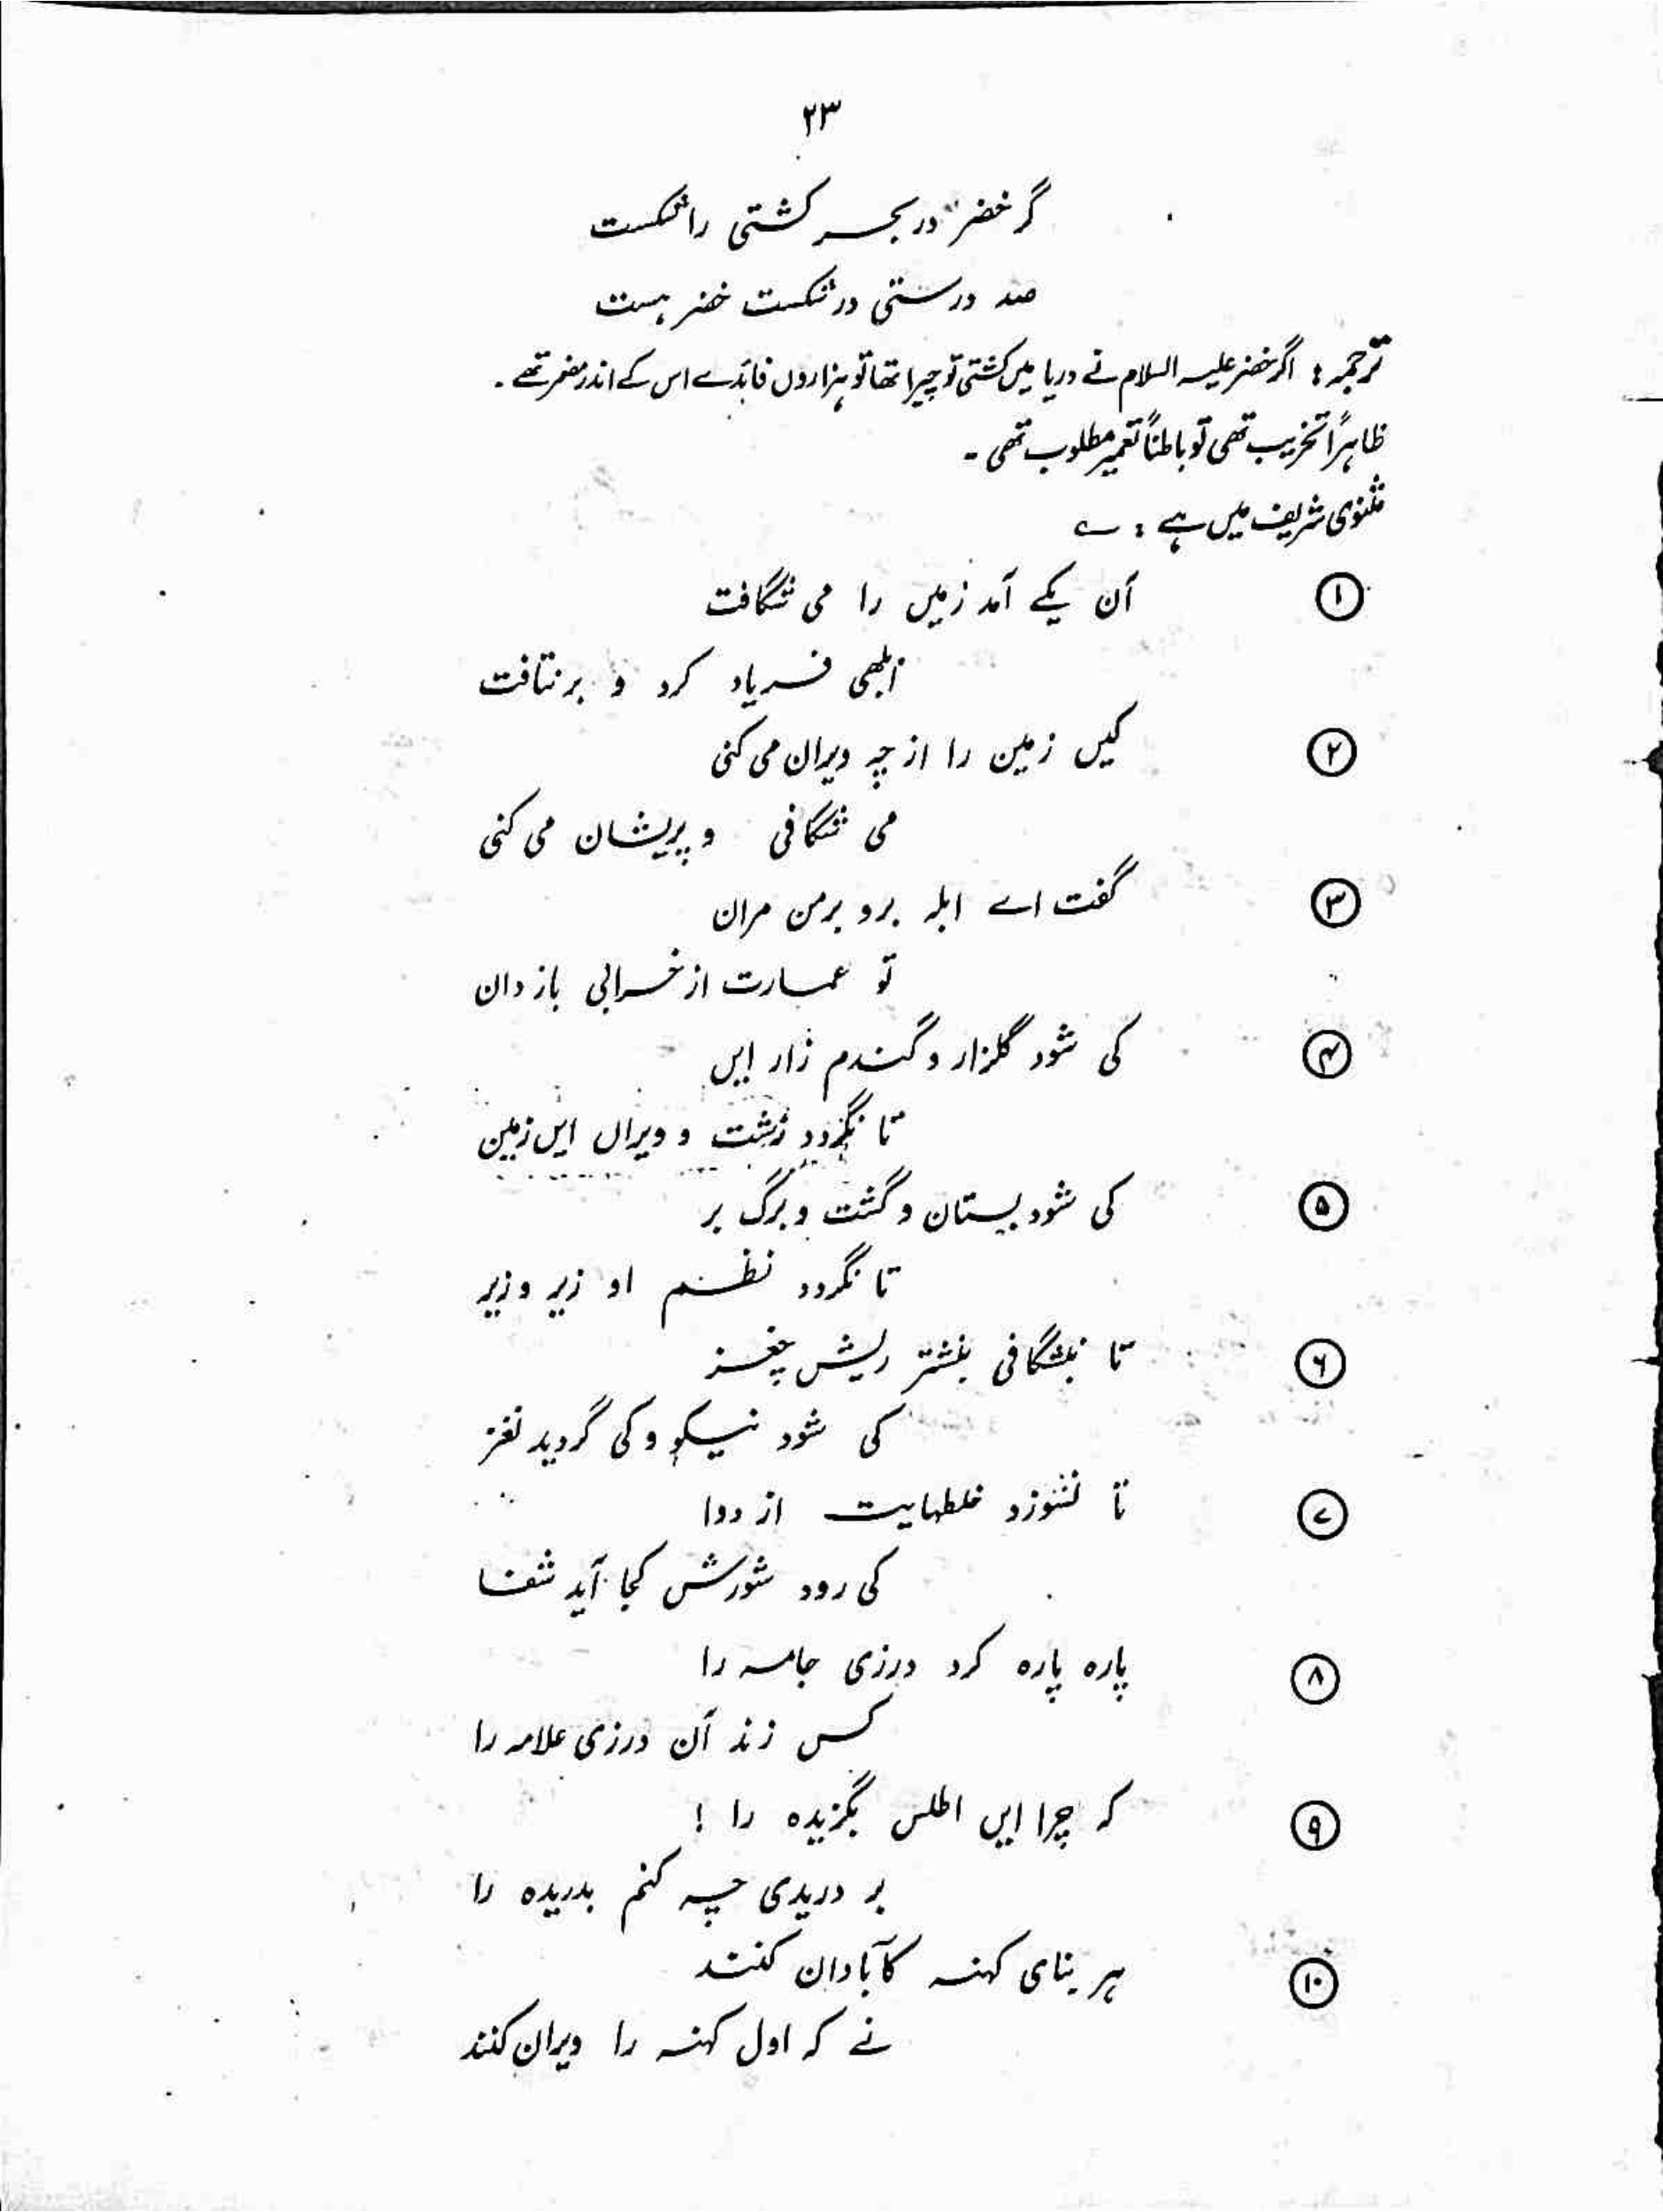 ۲۳
گر خضر در بحر کشتی را شکست
صد درستی در شکست خضر ہست
ترجمہ : اگر خضر علیہ السلام نے دریا میں کشتی تو چیرا تھا تو ہزاروں فائدے اس کے اندر مضمر تھے ۔
ظاہراً تخریب تھی تو باطناً تعمیر مطلوب تھی ۔
مثنوی شریف میں ہے : ؎
۱ آن یکے آمد زمیں را می شگافت
ابلھی فریاد کرد و بر نتافت
۲ کیں زمین را از چہ ویران می کنی
می شگافی و پریشان می کنی
۳ گفت اے ابلہ برو بر من مران
تو عمارت از خرابی باز دان
۴ کی شود گلزار و گندم زار ایں
تا نگردد زشت و ویراں ایں زمین
۵ کی شود بستان و گشت و برگ بر
تا نگردد نظم او زیر و زبر
۶ تا بشگافی بنشتر ریش چغز
کی شود نیکو و کی گردید نغز
۷ تا نشوزد خلطہایت از دوا
کی رود شورش کجا آید شفا
۸ پارہ پارہ کرد درزی جامہ را
کس زند آن درزی علامہ را
۹ کہ چرا ایں اطلس بگزیدہ را !
بر دریدی چہ کنم بدریدہ را
۱۰ ہر بنای کہنہ کآبادان کنند
نے کہ اول کہنہ را ویران کنند